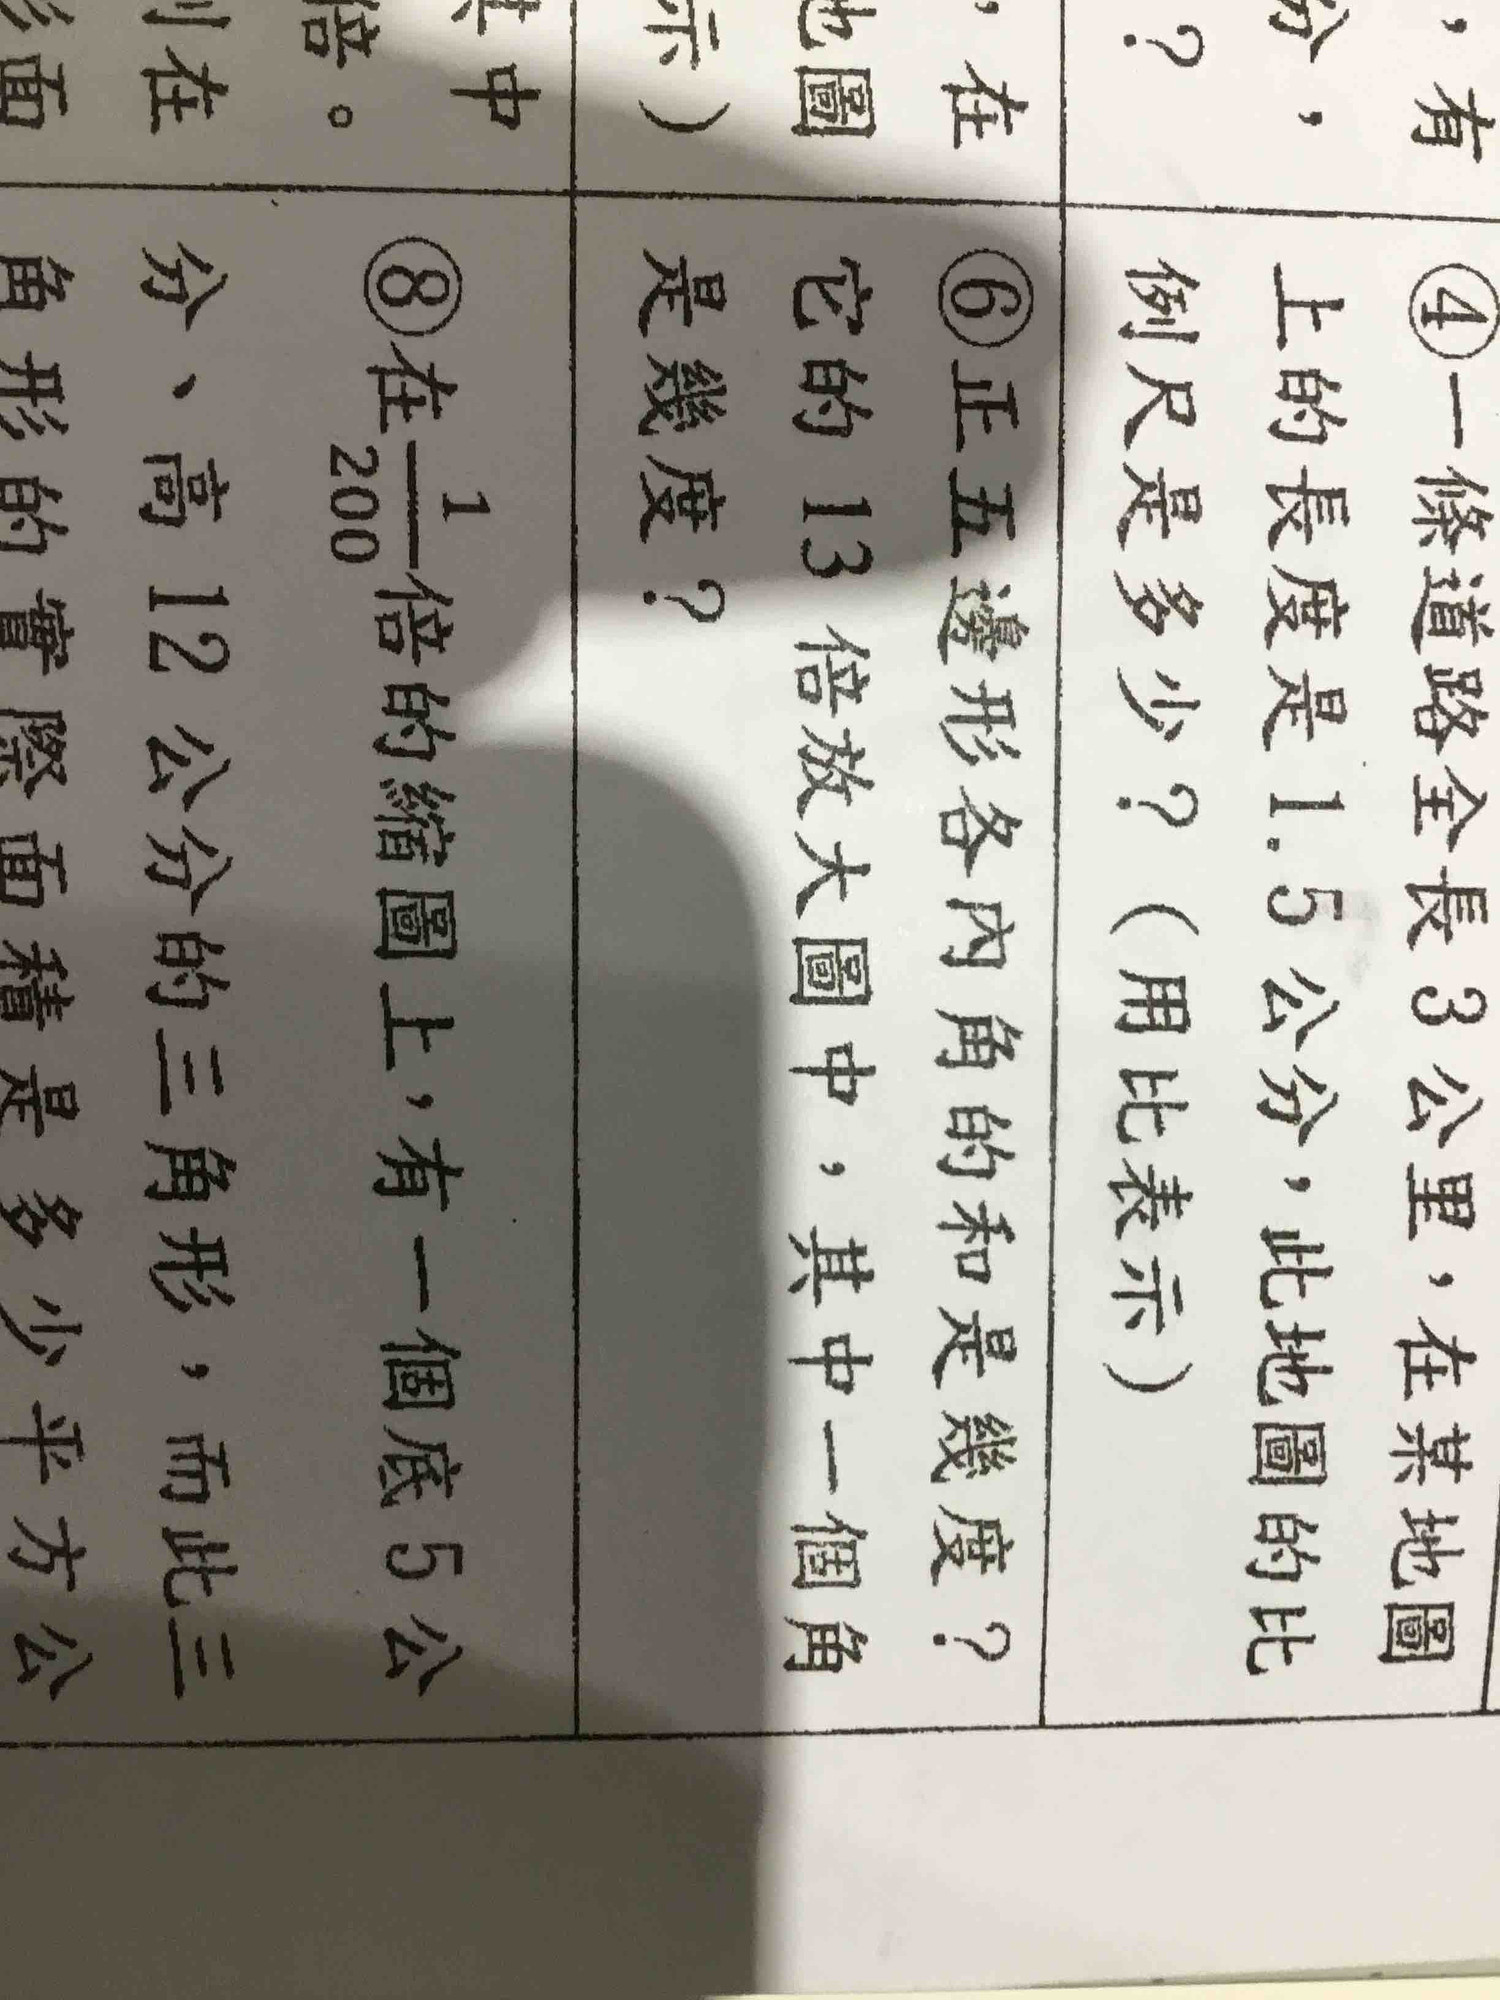 ，有
分，
？
④一條道路全長3公里，在某地圖
上的長度是1.5公分，此地圖的比
例尺是多少？（用比表示）
，在
地圖
示）
⑥正五邊形各內角的和是幾度？
它的13倍放大圖中，其中一個角
是幾度？
其中
倍。
別在
形面
⑧在1/200倍的縮圖上，有一個底5公
分、高12公分的三角形，而此三
角形的實際面積是多少平方公